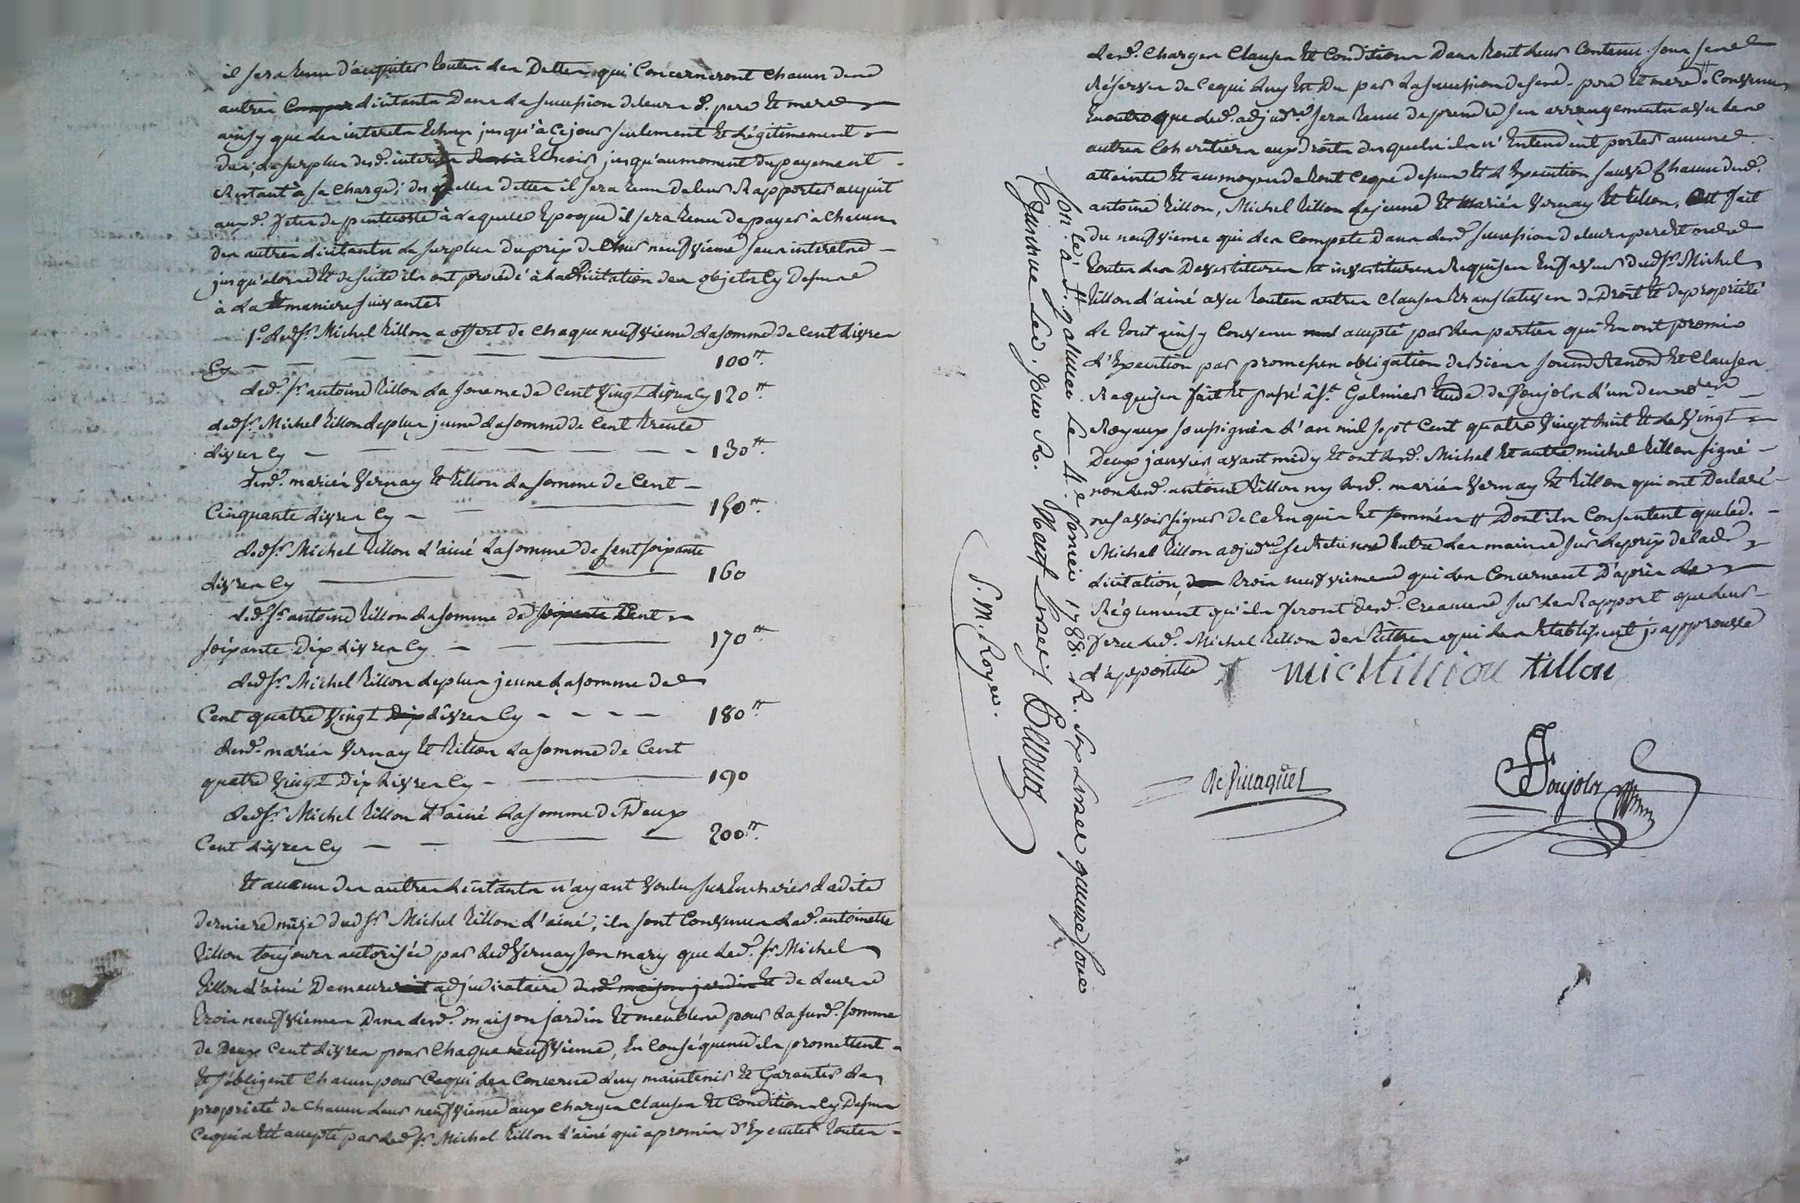 il sera tenu d'acquiter toutes les Dettes qui Concerneront chacun des
autres licitants Dans la succession de leurs d. pere Et mere
ainsy que les interets Echus jusqu'à ce jour seulement Et légitimement
dus, le surplus desd. interets Echoir jusqu'au moment du payement
Restant à sa charge; desquelles dettes il sera tenu de leur Rapporter acquit
auxd. fêtes de pentecoste à laquelle Epoque il sera tenu de payer à chacun
des autres licitants le surplus du prix de leur neufvieme sans interets
jusqu'alors Et de suite ils ont procédé à lad. licitation des objets Cy Dessus
à la maniere suivante
1.° led. Sr. Michel tillon a offert de chaque neufvieme la somme de Cent livres
Cy 100tt.
led. Sr. antoine tillon la somme de Cent Vingt livres Cy 120tt
led. Sr. Michel tillon le plus jeune la somme de Cent trente
livres Cy 130tt.
lesd. mariés Vernay Et tillon la somme de Cent
Cinquante livres Cy 150tt.
led. Sr. Michel tillon l'ainé la somme de Cent soixante
livres Cy 160
led. Sr. antoine tillon la somme de Cent
soixante Dix livres Cy 170tt
led. Sr. Michel tillon le plus jeune la somme de
Cent quatre Vingt livres Cy 180tt
lesd. mariés Vernay Et tillon la somme de Cent
quatre Vingt Dix livres Cy 190
led. Sr. Michel tillon l'ainé la somme de Deux
Cent livres Cy 200tt.
Et aucun des autres licitants n'ayant Voulu sur Encherir ladite
derniere mise dud. Sr. Michel tillon l'ainé, ils sont Convenus lad. antoinette
tillon toujours autorisée par led. Vernay son mary que led. Sr. Michel
tillon l'ainé Demeure adjudicataire de leurs
trois neufviemes Dans lesd. maison jardin Et meubles pour la susd. somme
de Deux Cent livres pour Chaque neufvieme, En Conséquence ils promettent
Et s'obligent Chacun pour Ce qui les Concerne luy maintenir Et Garantir la
propriété de Chacun leur neufvieme aux Charges Clauses Et Conditions Cy Dessus
Ce qui a Eté accepté par led. Sr. Michel tillon l'ainé qui a promis d'Executer toutes
lesd. Charges Clauses Et Conditions Dans tout leur Contenu sous
Réserve de Ce qui luy Est Du par la succession desd. pere Et mere # Convenu
En outre que led. adjud.re sera tenu de prendre ses arrangements avec les
autres Coheritiers aux droits desquels ils n'Entendent porter aucune
atteinte Et au moyen de tout Ce que dessus Et l'Execution sauve Chacun desd.
antoine tillon, Michel tillon le jeune Et mariés Vernay Et tillon, ont fait
du neufvieme qui les Compete Dans lesd. succession de leurs pere Et mere
toutes les Devestitures Et investitures Requises En faveur dud. Sr. Michel
tillon l'ainé avec toutes autres Clauses translatives de Droit Et de propriété
le tout ainsy Convenu accepté par les parties qui En ont promis
l'Execution par promesses obligation de Biens soumis Renon.d Et Clauses
Requises fait Et passé à St. Galmier Etude de Poujols l'un des no.res
Royaux soussignés l'an mil sept Cent quatre Vingt huit Et le Vingt
Deux janvier avant midy Et ont lesd. Michel Et autre michel tillon signé
non led. antoine tillon ny lesd. mariés Vernay Et tillon qui ont Declaré
ne savoir signer de Ce Enquis Et sommés # Dont ils Consentent que led.
Michel tillon adjud.re se Retienne Entre les mains sur le prix de lad.
licitation trois neufviemes qui les Concernent D'après le
Réglement qu'ils feront desd. Creances sur le Rapport que leur
fera led. Michel tillon des titres qui les Etablissent j'approuve
l'apostille
michtilliou tillon
Poujols
Con.lé à St. galmier le 4.e fevrier 1788. R. six livres quinze sous
P. M. Royer.